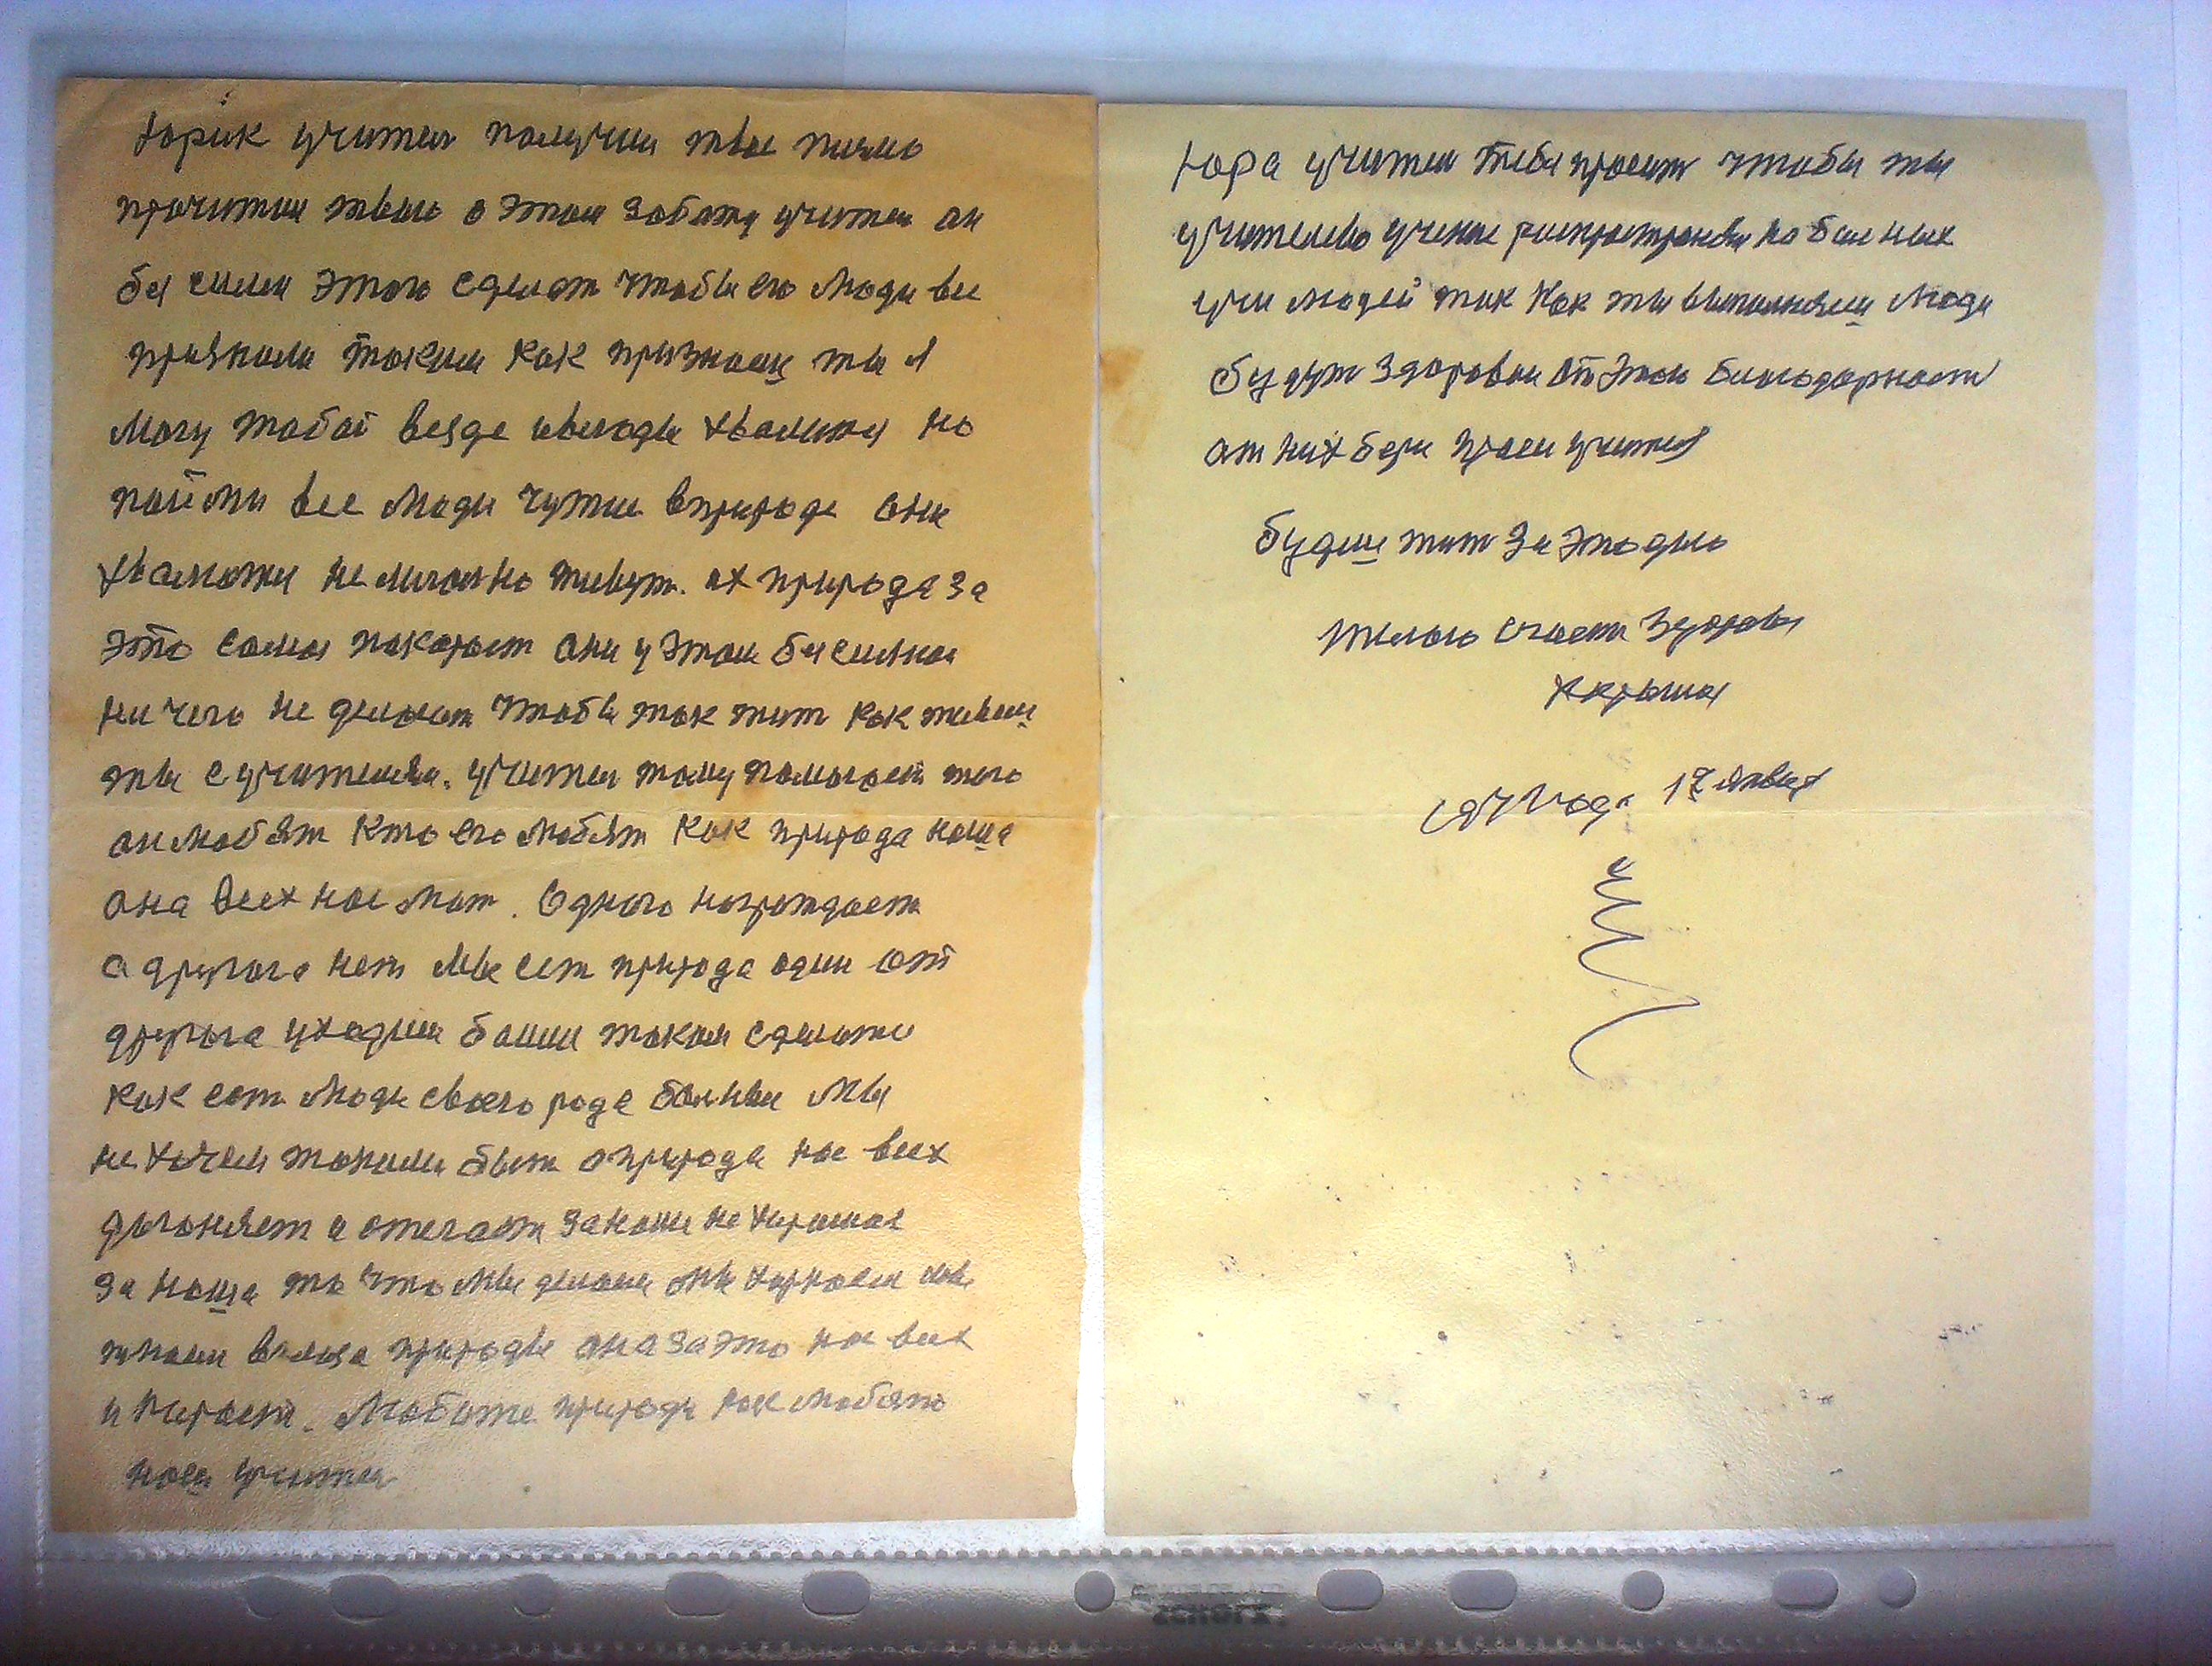 Юрик учител получил твае писмо
прочитал твою о этом заботу учител он
бы силен этого сделат чтобы его люди все
признали таким как признаеш ты я
Могу табой везде хвалится но
поими все люди чужие вприроде они
не живут. их природа за
это самое покараст они у этом бы силные
ни чего не делают чтобы так жит как живеш
ты с учителям. учител тому помогает того
он любят кто его любят как природа наша
она всех нас мат. Одного награждает
а другого нет мы ест природа один от
другога уходим такое сделали
как ест люди своего рода болныи мы
не хочем такими быт а природа нас всех
дагоняет и за наше не хорошое
за наша то что мы делаем мы
природе она за это нас всех
и карает. Любите природу как любят
наш учител
Юра учител тебя просит чтобы ты
учителево учение распространял на болных
учи людей так как ты выполняеш люди
будут здоровои от этого благодарности
от них бери проси учителя
будиш жит за это дело
Желаю счастя здоровя
хорошая
года 17 января